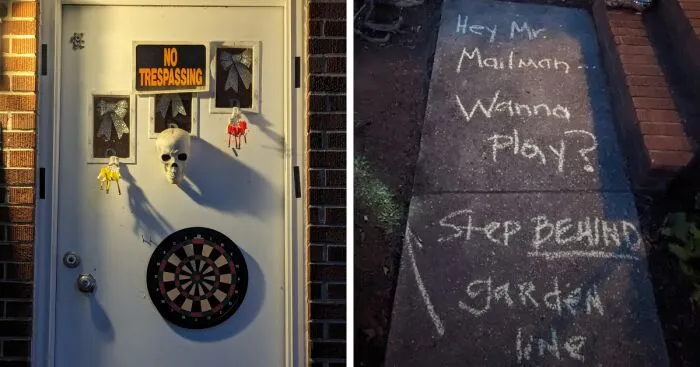 NO
TRESPASSING
Hey Mr.
Mailman...
Wanna
play?
Step BEHIND
garden
line